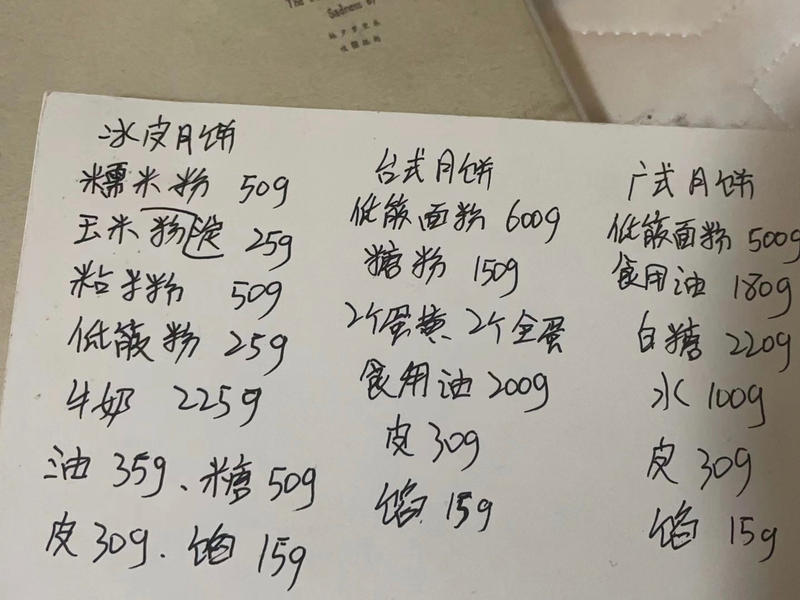 The
Sadness by
冰皮月饼
糯米粉 50g
玉米淀粉 25g
粘米粉 50g
低筋粉 25g
牛奶 225g
油 35g、糖 50g
皮 30g、馅 15g
台式月饼
低筋面粉 600g
糖粉 150g
2个蛋黄、2个全蛋
食用油 200g
皮 30g
馅 15g
广式月饼
低筋面粉 500g
食用油 180g
白糖 220g
水 100g
皮 30g
馅 15g